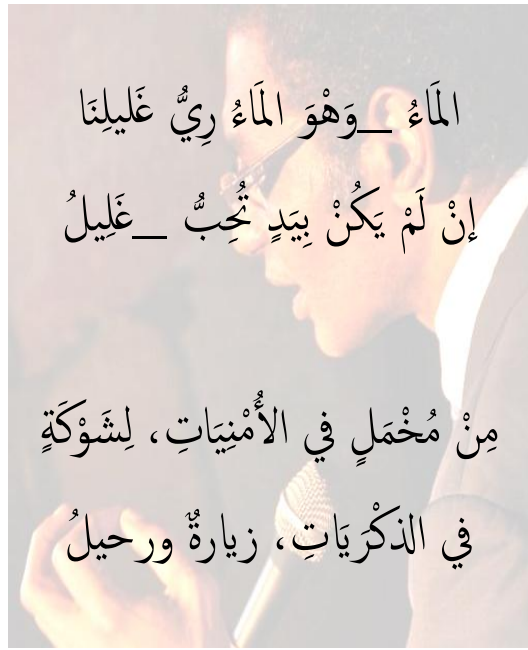 المَاءُ _وَهْوَ المَاءُ رِيُّ غَليلِنَا
إنْ لَمْ يَكُنْ بِيَدٍ تُحِبُّ _غَلِيلُ
مِنْ مُخْمَلٍ في الأُمْنِيَاتِ، لِشَوْكَةٍ
في الذكْرَيَاتِ، زيارةٌ ورحيلُ